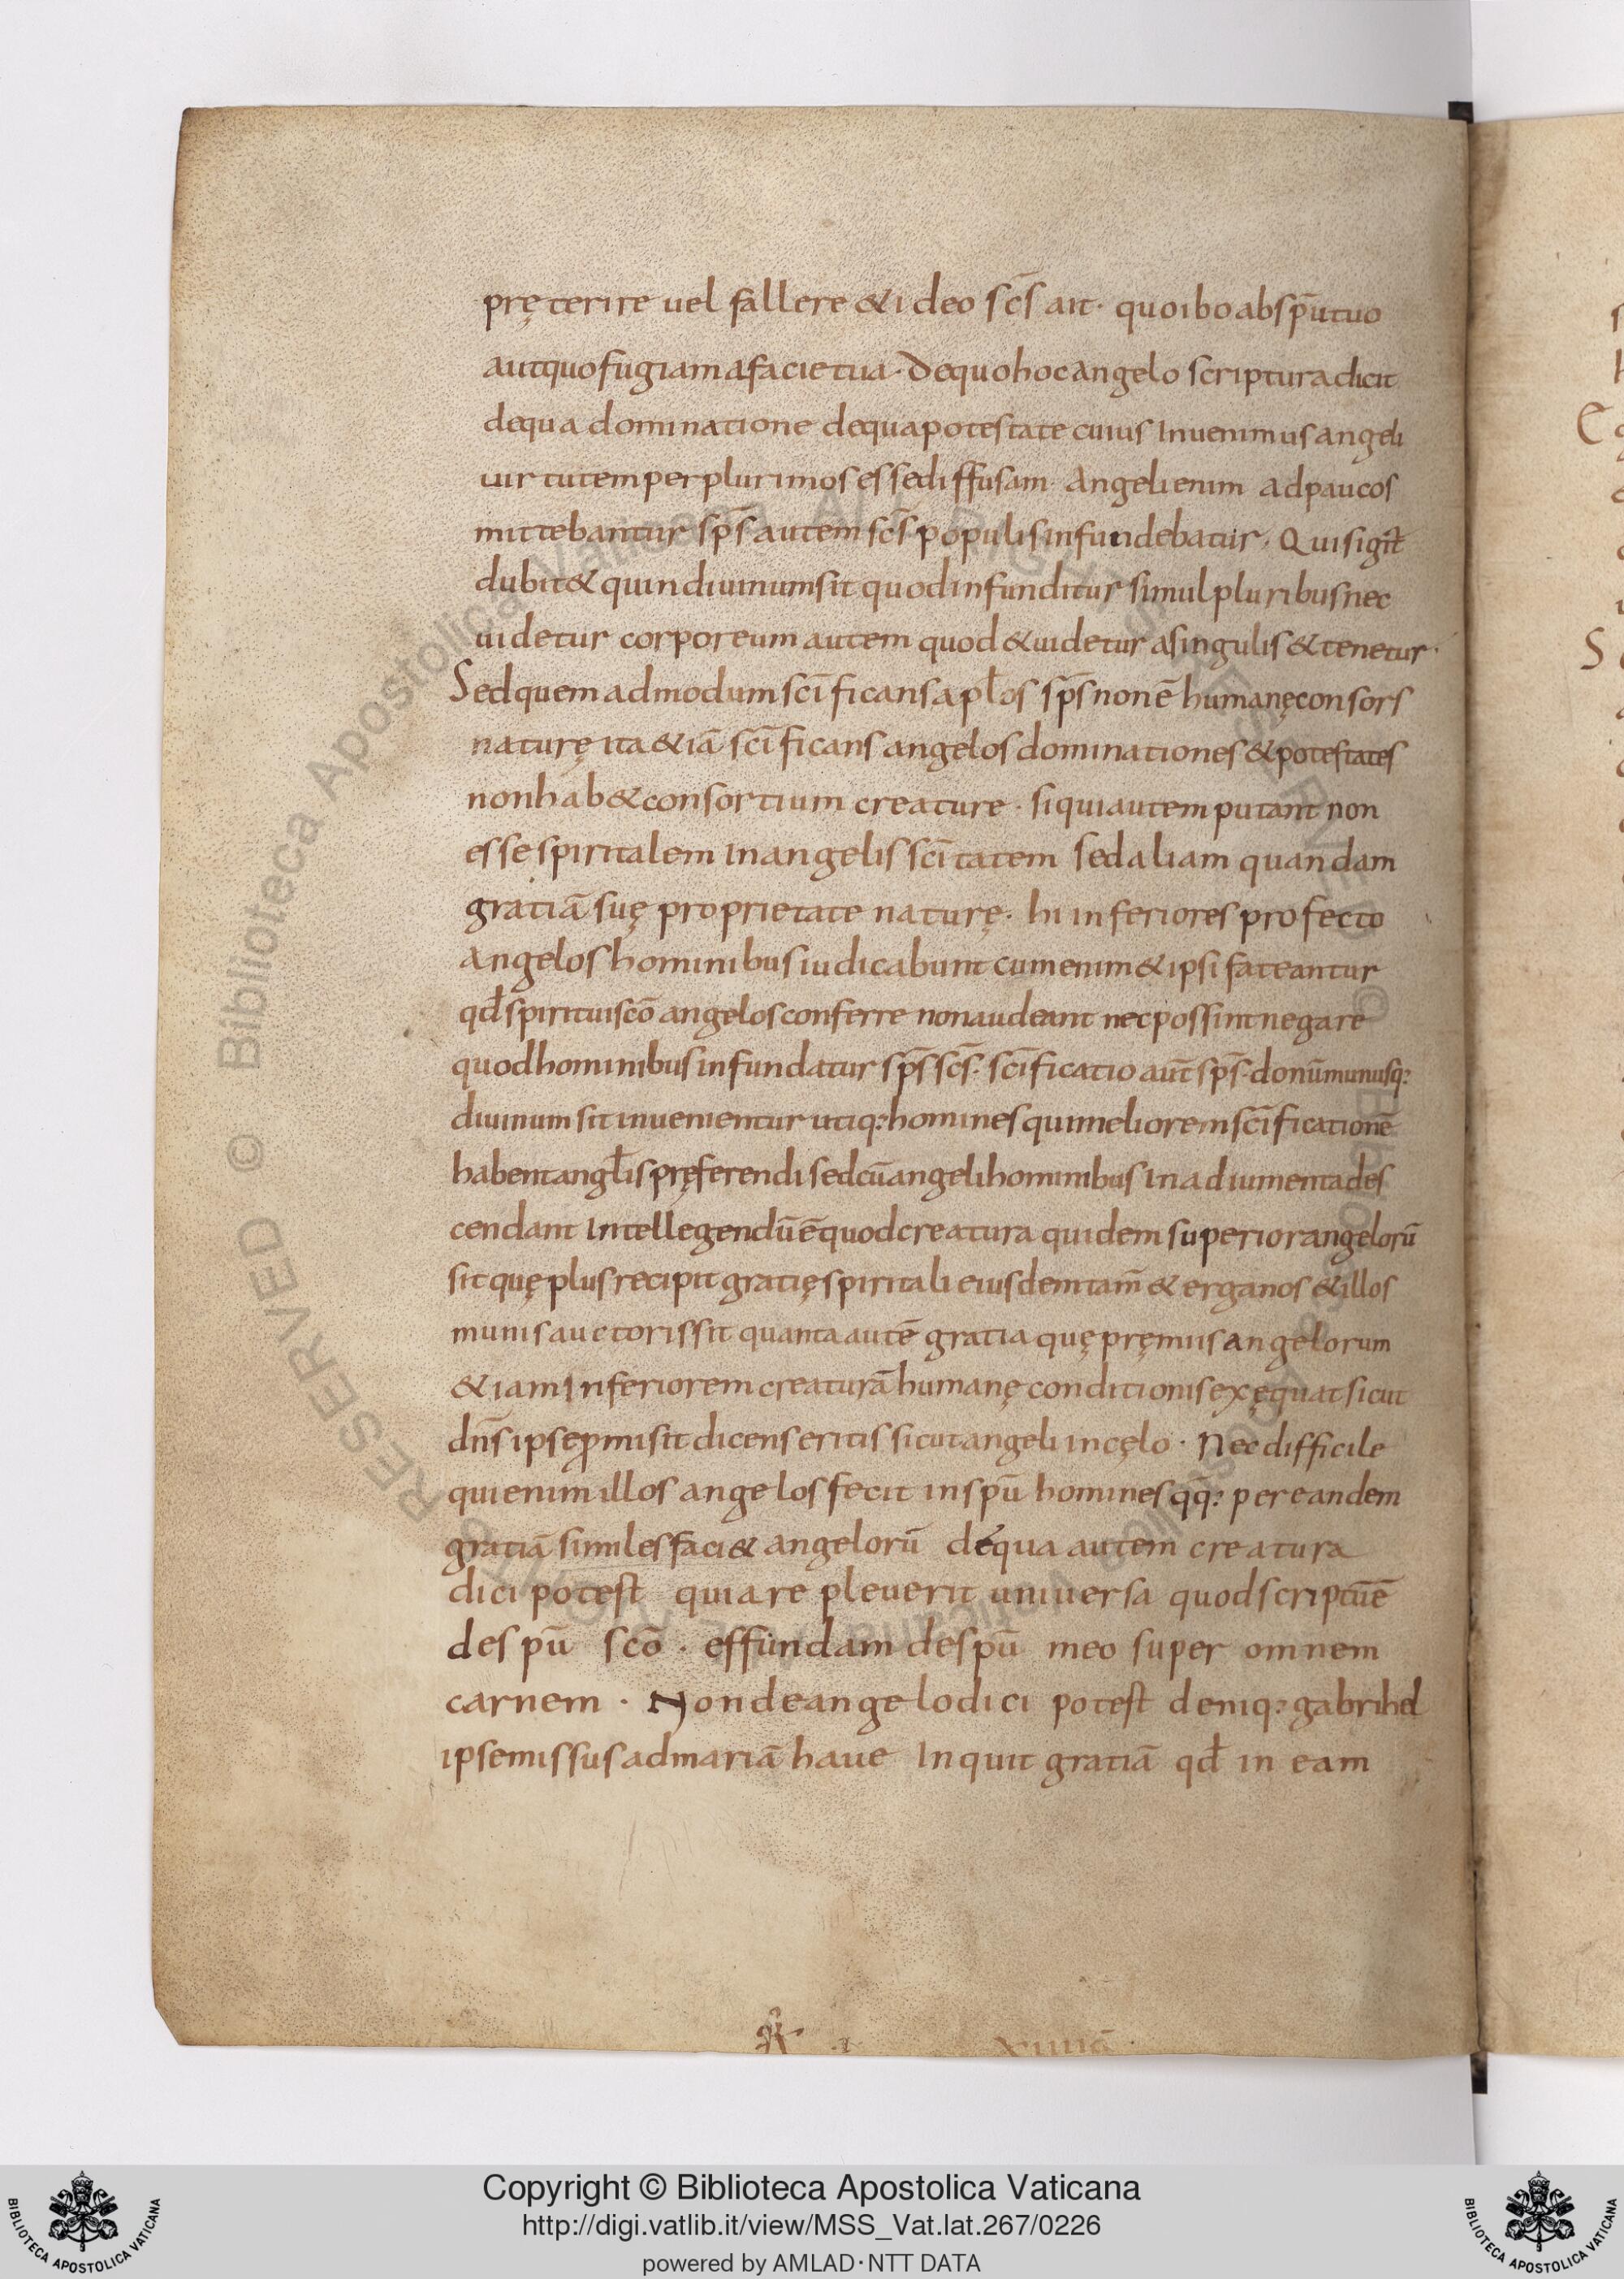 pręterire uel fallere & ideo sc̄s ait · quo ibo ab sp̄u tuo
aut quo fugiam a facie tua · De quo hoc angelo scriptura dicit
de qua dominatione de qua potestate cuius Inuenimus angeli
uirtutem per plurimos esse diffusam · Angeli enim ad paucos
mittebantur sp̄s autem sc̄s · populis infundebatur · Quis igit̄
dubit& quin diuinum sit quod infunditur simul pluribus nec
uidetur corporeum autem quod & uidetur a singulis & tenetur ·
Sed quemadmodum sc̄ificans apl̄os sp̄s non ē humanę consors
naturę ita &iā sc̄ificans angelos dominationes & potestates
non hab& consortium creature · siqui autem putant non
esse spiritalem In angelis sc̄itatem sed aliam quandam
gratiā suę proprietate naturę · hi inferiores profecto
Angelos hominibus iudicabunt cum enim & ipsi fateantur
qd̄ spiritui sc̄o angelos conferre non audeant nec possint negare
quod hominibus infundatur sp̄s sc̄s · sc̄ificatio aut̄ sp̄s · donū munusq:
diuinum sit inuenientur utiq: homines qui meliorem sc̄ificationē
habent angl̄is pręferendi sed cū angeli hominibus In adiumenta des
cendant Intellegendū ē quod creatura quidem superior angelorū
sit quę plus recipit gratię spiritali eiusdem tam̄ & erga nos & illos
munis auctoris sit quanta autē gratia quę pręmiis angelorum
&iam Inferiorem creaturā humanę conditionis exęquat sicut
dn̄s ipse p̱misit dicens eritis sicut angeli in cęlo · Nec difficile
qui enim illos angelos fecit in sp̄u homines qq̄: per eandem
gratiā similes faci& angelorū de qua autem creatura
dici potest quia repleuerit uniuersa quod scriptū ē
de sp̄u sc̄o · effundam de sp̄u meo super omnem
carnem · Non de angelo dici potest deniq: gabrihel
ipse missus ad mariā haue Inquit gratiā qd̄ in eam
Copyright © Biblioteca Apostolica Vaticana
http://digi.vatlib.it/view/MSS_Vat.lat.267/0226
powered by AMLAD · NTT DATA
BIBLIOTECA APOSTOLICA VATICANA
BIBLIOTECA APOSTOLICA VATICANA